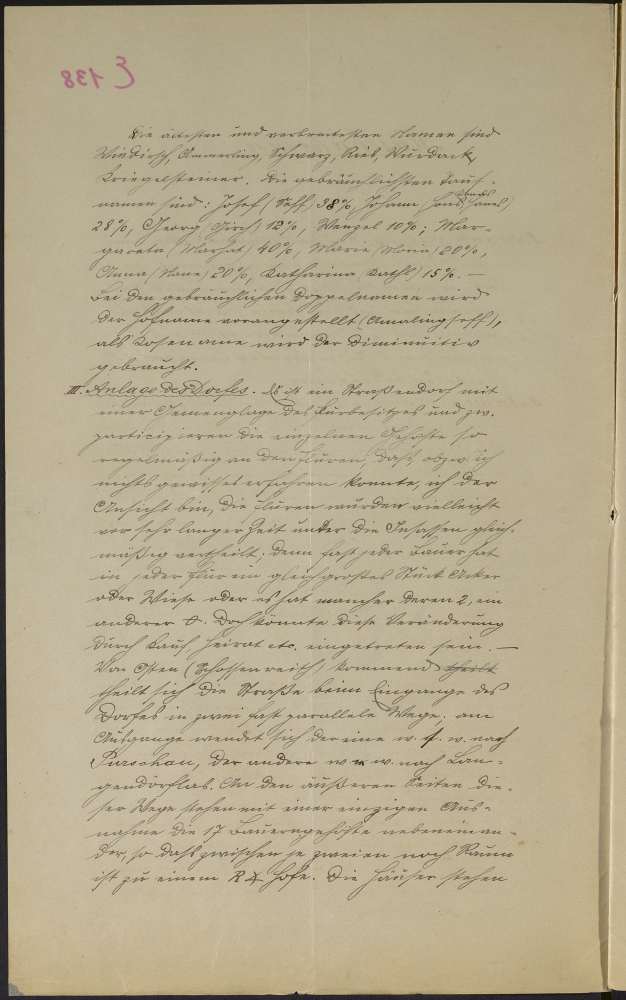 ξ 138
Die ältesten und verbreitetsten Namen sind
Windirsch, Ammerling, Schwarz, Rieb, Wurdack,
Kriegelsteiner. Die gebräuchlichsten Tauf-
namen sind: Josef (Seff) 38%, Johann
28%, Georg (Girch) 12%, Wenzel 10%; Mar-
gareta (Marhat) 40%, Maria (Morie) 20%,
Anna (Nane) 20%, Katharina (Kathl) 15%. —
Bei den gebräuchlichen Doppelnamen wird
der Hofname vorangestellt (Amalingseff),
als Kosename wird der Diminuitiv
gebraucht.
III. Anlage des Dorfes. Es ist ein Straßendorf mit
einer Gemenglage des Flurbesitzes und zw.
participieren die einzelnen Gehöfte so
regelmäßig an den Fluren, dass, obzw. ich
nichts gewisses erfahren konnte, ich der
Ansicht bin, die Fluren wurden vielleicht
vor sehr langer Zeit unter die Insassen gleich-
mäßig vertheilt; denn fast jeder Bauer hat
in jeder Flur ein gleichgroßes Stück Acker
oder Wiese oder es hat mancher deren 2, ein
anderer 0. Doch könnte diese Veränderung
durch Kauf, Heirat etc. eingetreten sein. —
Von Osten (Schossenreith) kommend theilt
theilt sich die Straße beim Eingange des
Dorfes in zwei fast parallele Wege; am
Ausgange wendet sich der eine w. s. w. nach
Purschau, der andere w n w. nach Lan-
gendörflas. An den äußeren Seiten die-
ser Wege stehen mit einer einzigen Aus-
nahme die 17 Bauerngehöfte nebeneinan-
der, so dass zwischen je zweien noch Raum
ist zu einem Hofe. Die Häuser stehen